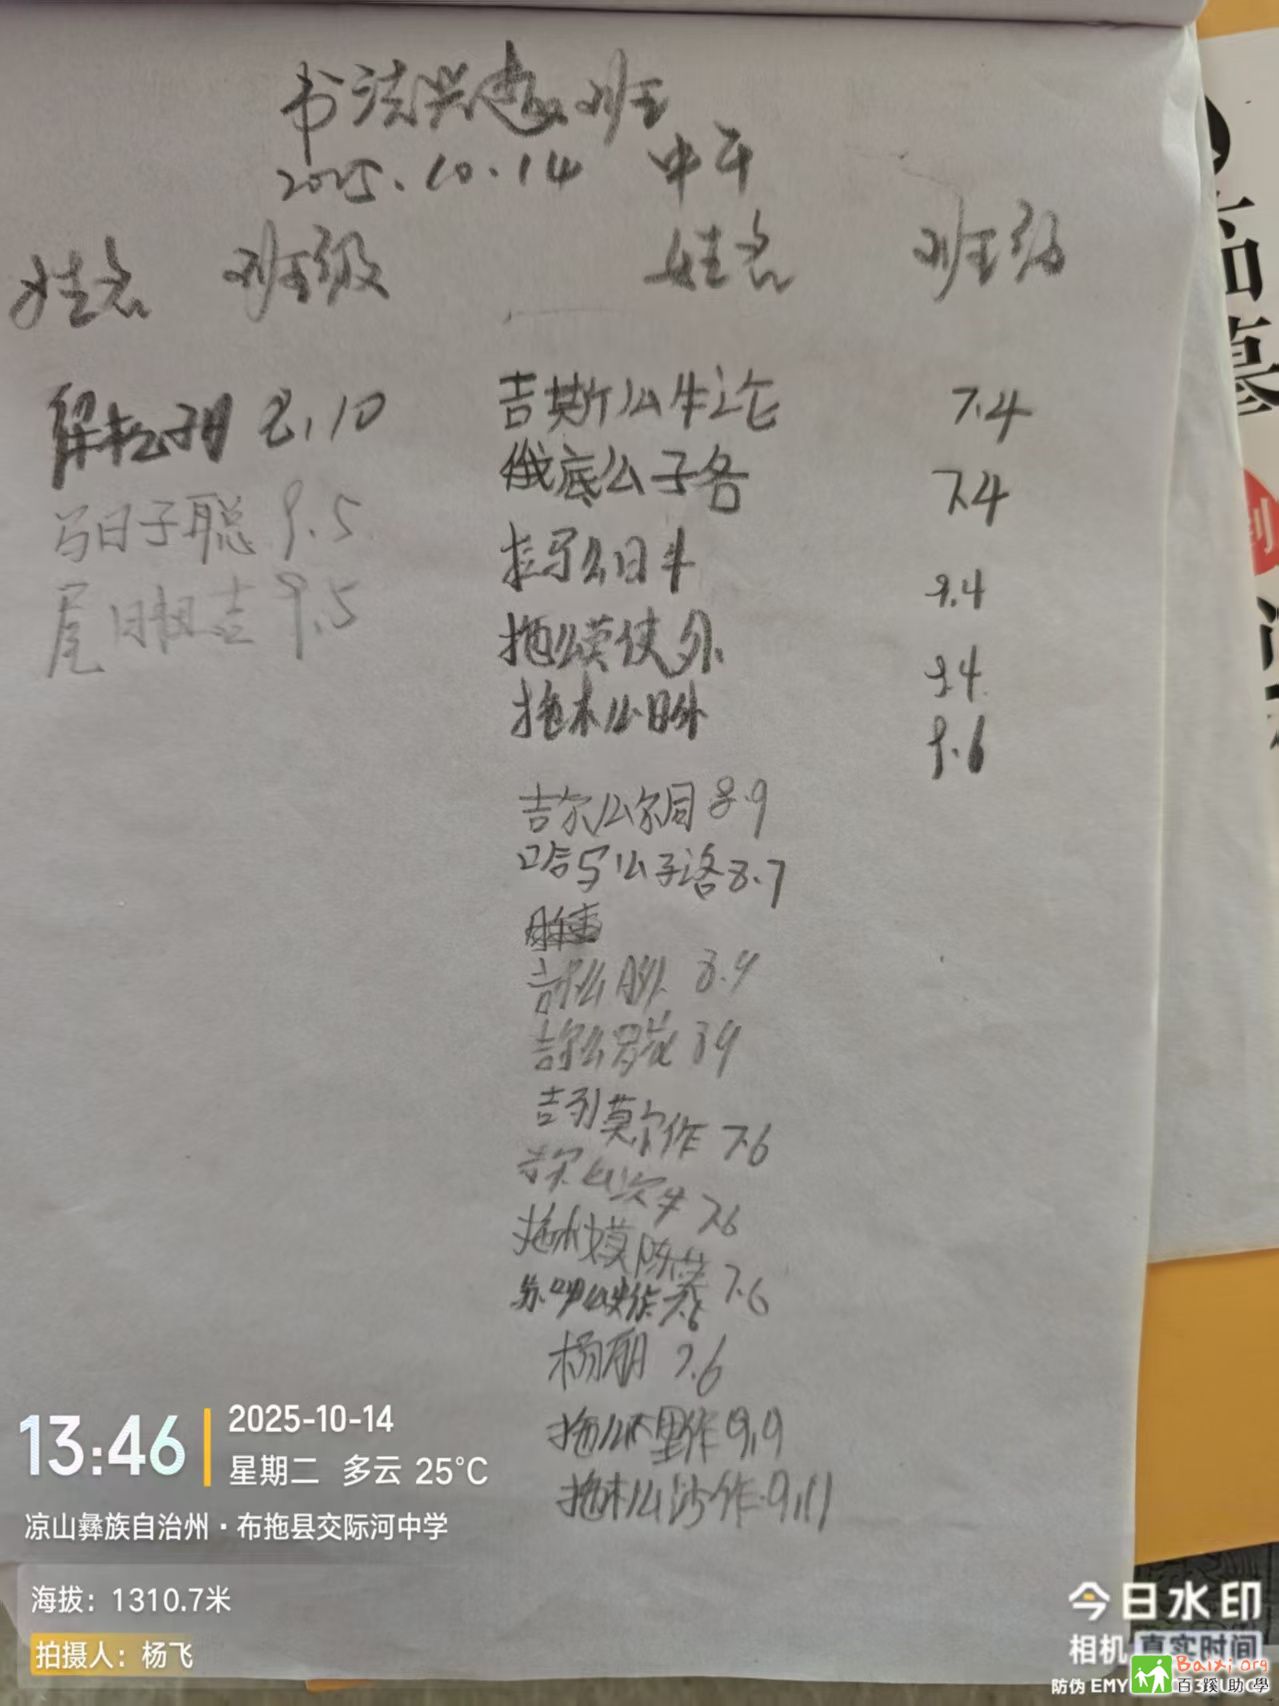 书法兴趣班
2025.10.14 中午
姓名 班级 姓名 班级
8.10
马日子聪 9.5
尾日 吉 9.5
吉斯么牛论 7.4
俄底么子各 7.4
拉马么日牛 9.4
拖么莫使外 9.4
拖木么日外 9.6
吉尔么尔周 8.9
哈马么子洛 8.7
吉 么 8.9
吉尔么罗 8.9
吉 莫尔作 7.6
吉尔么次牛 7.6
拖木 莫陈 7.6
苏 么 作 7.6
杨丽 7.6
拖么 里作 9.9
拖木么沙作 9.11
13:46
2025-10-14
星期二 多云 25°C
凉山彝族自治州·布拖县交际河中学
海拔：1310.7米
拍摄人：杨飞
临摹
到
今日水印
相机 真实时间
防伪 EMY
Baixi.org
百蹊助学